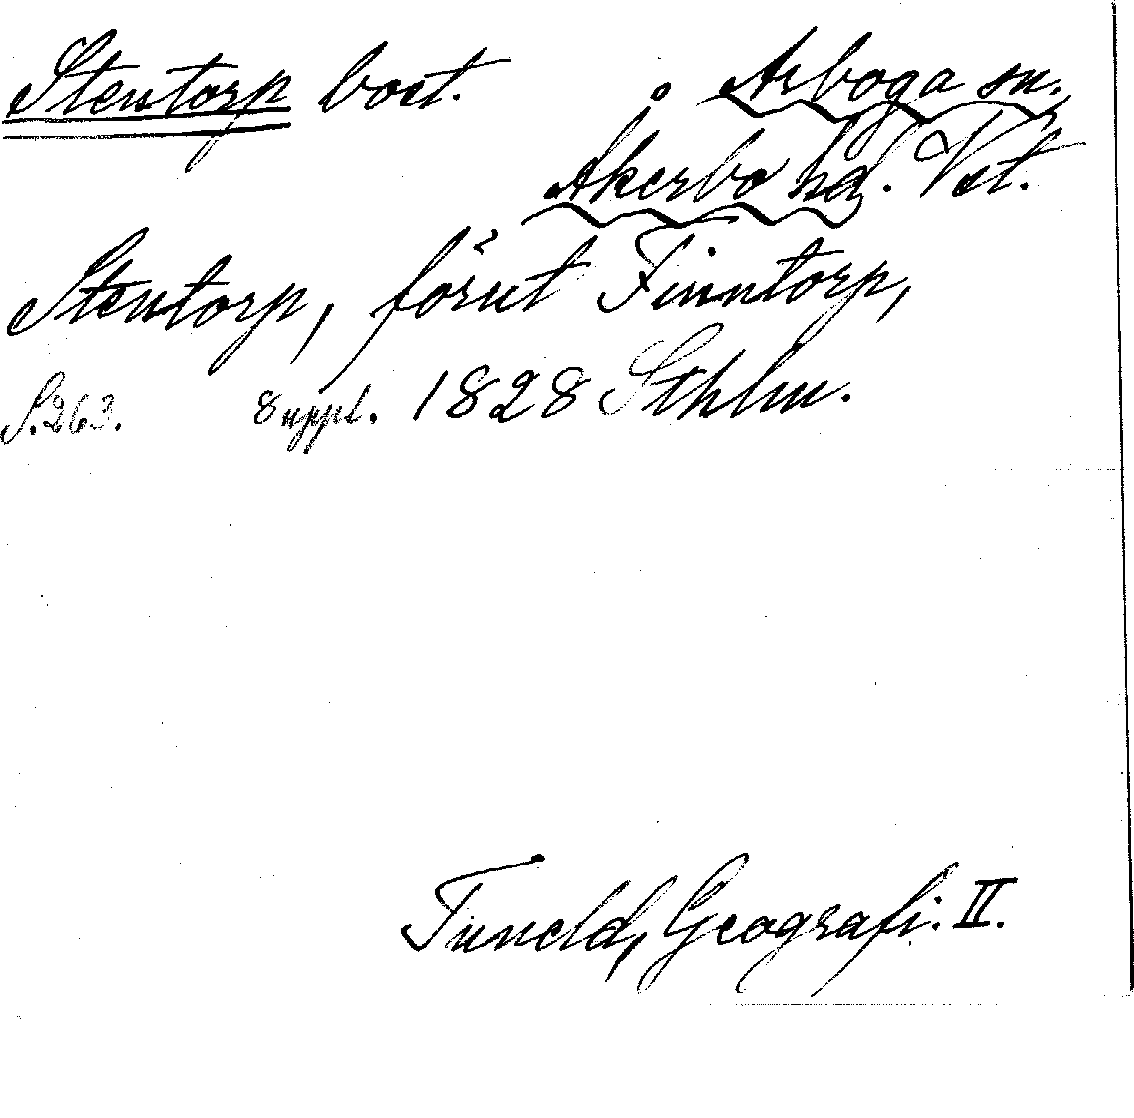 Stentorp bost. Arboga sn.
Åkerbo hd. Vst.
Stentorp, förut Finntorp,
S. 263. 8 uppl. 1828 Sthlm.
Tuneld, Geografi. II.